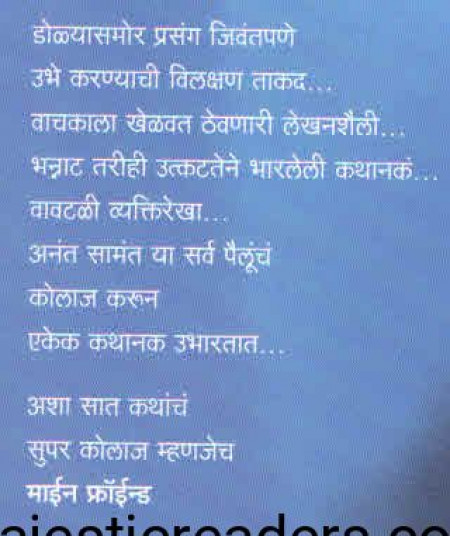 डोळ्यासमोर प्रसंग जिवंतपणे
उभे करण्याची विलक्षण ताकद...
वाचकाला खेळवत ठेवणारी लेखनशैली...
भन्नाट तरीही उत्कटतेने भारलेली कथानकं...
वावटळी व्यक्तिरेखा...
अनंत सामंत या सर्व पैलूंचं
कोलाज करून
एकेक कथानक उभारतात...
अशा सात कथांचं
सुपर कोलाज म्हणजेच
माईन फ्रॉईन्ड